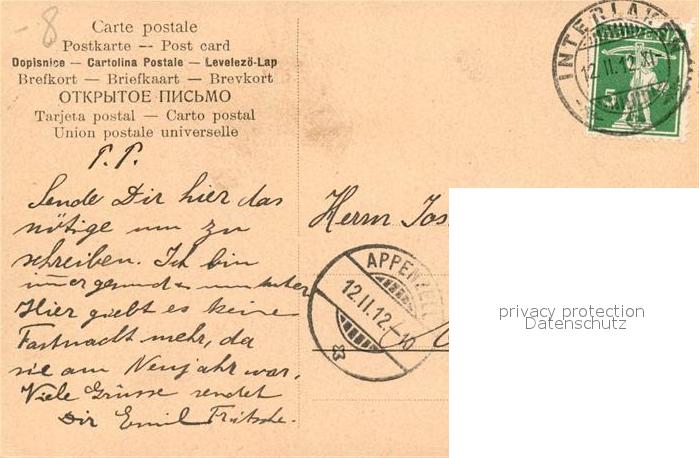 -8
Carte postale
Postkarte -- Post card
Dopisnice — Cartolina Postale — Levelező-Lap
Brefkort — Briefkaart — Brevkort
ОТКРЫТОЕ ПИСЬМО
Tarjeta postal — Carto postal
Union postale universelle
P. P.
Sende Dir hier das
nötige um zu
schreiben. Ich bin
im̄er gesund u. munter
Hier giebt es keine
Fastnacht mehr, da
sie am Neujahr war.
Viele Grüsse sendet
Dir Emil Fritsche.
INTERLAKEN
12.II.12.XI-
5
Herrn Jos
APPENZELL
12.II.12.-10
privacy protection
Datenschutz